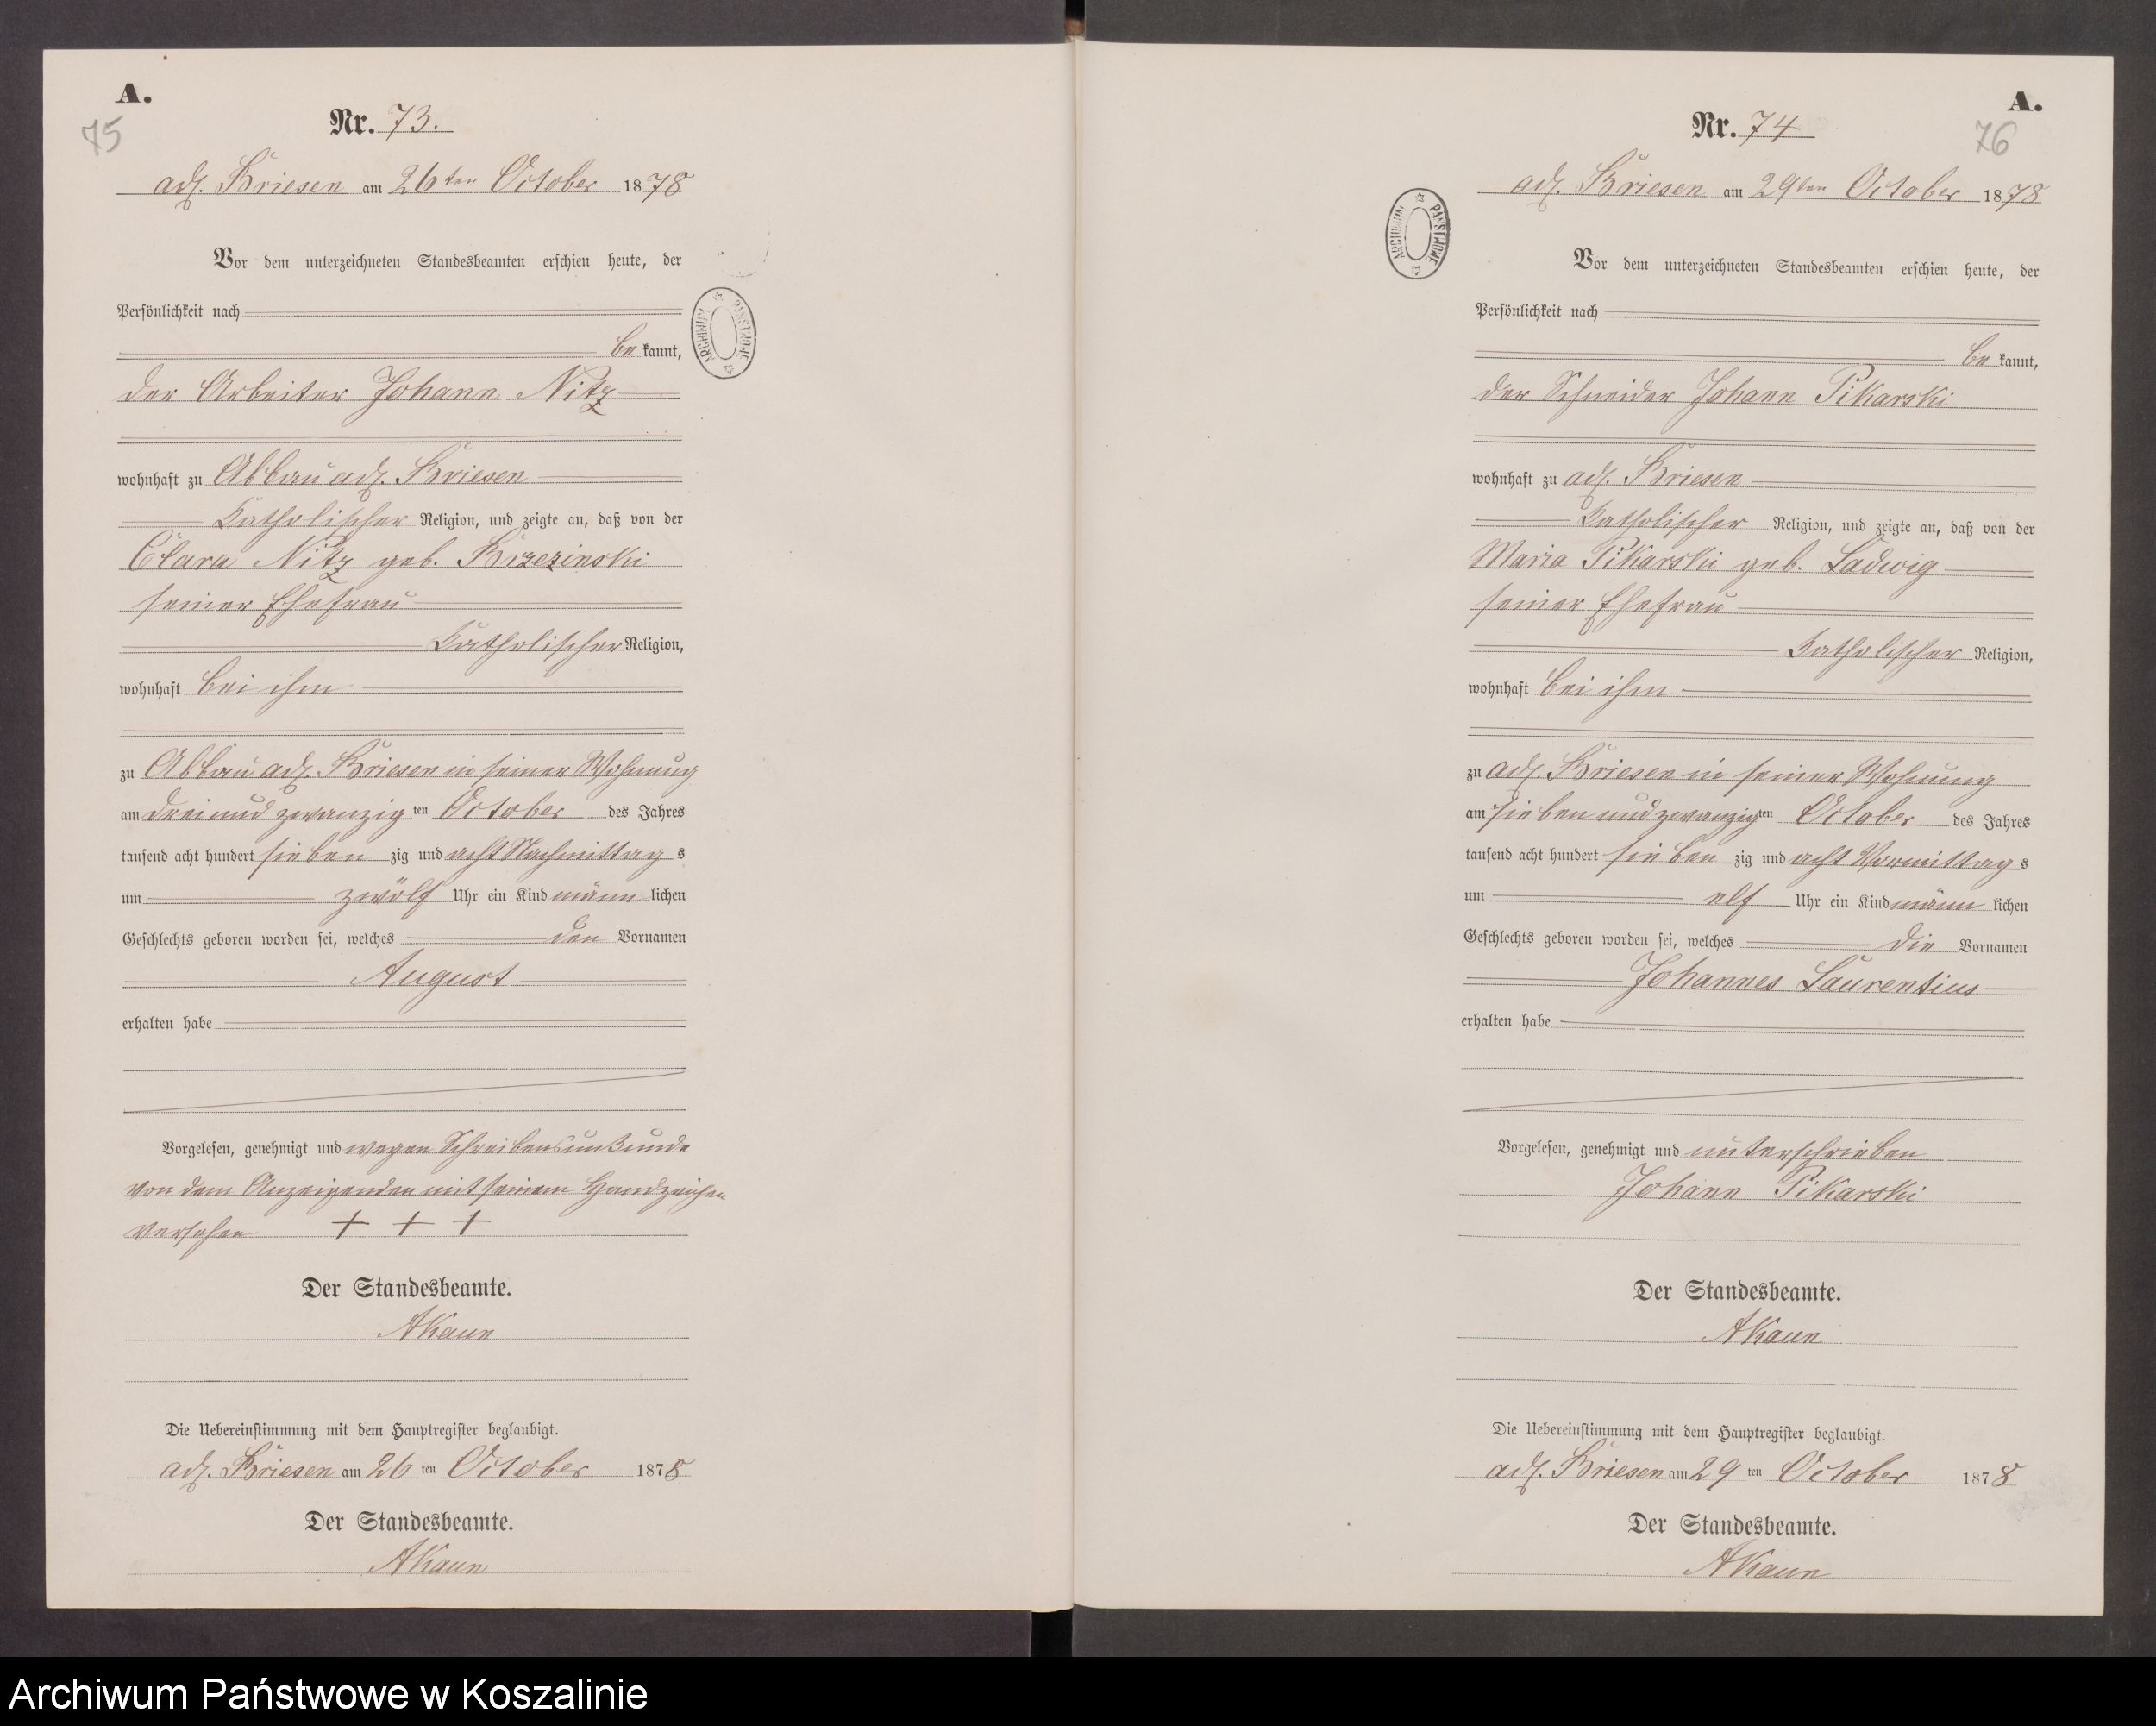 A.
75
Nr. 73.
adl. Briesen am 26ten October 1878
Vor dem unterzeichneten Standesbeamten erschien heute, der
Persönlichkeit nach
be kannt,
der Arbeiter Johann Nitz
wohnhaft zu Abbau adl. Briesen
katholischer Religion, und zeigte an, daß von der
Clara Nitz geb. Brzezinski
seiner Ehefrau
katholischer Religion,
wohnhaft bei ihm
zu Abbau adl. Briesen in seiner Wohnung
am drei und zwanzig ten October des Jahres
tausend acht hundert sieben zig und acht Nachmittag s
um zwölf Uhr ein Kind männ lichen
Geschlechts geboren worden sei, welches den Vornamen
August
erhalten habe
Vorgelesen, genehmigt und wegen Schreibensunkunde
von dem Anzeigenden mit seinem Handzeichen
versehen + + +
Der Standesbeamte.
AKaun
Die Uebereinstimmung mit dem Hauptregister beglaubigt.
adl. Briesen am 26 ten October 1878
Der Standesbeamte.
AKaun
A.
76
Nr. 74
adl. Briesen am 29ten October 1878
ARCHIWUM PAŃSTWOWE
Vor dem unterzeichneten Standesbeamten erschien heute, der
Persönlichkeit nach
be kannt,
der Schneider Johann Pikarski
wohnhaft zu adl. Briesen
katholischer Religion, und zeigte an, daß von der
Maria Pikarski geb. Ladwig
seiner Ehefrau
katholischer Religion,
wohnhaft bei ihm
zu adl. Briesen in seiner Wohnung
am sieben und zwanzig ten October des Jahres
tausend acht hundert sieben zig und acht Vormittag s
um elf Uhr ein Kind männ lichen
Geschlechts geboren worden sei, welches die Vornamen
Johannes Laurentius
erhalten habe
Vorgelesen, genehmigt und unterschrieben
Johann Pikarski
Der Standesbeamte.
AKaun
Die Uebereinstimmung mit dem Hauptregister beglaubigt.
adl. Briesen am 29 ten October 1878
Der Standesbeamte.
AKaun
ARCHIWUM PAŃSTWOWE
Archiwum Państwowe w Koszalinie